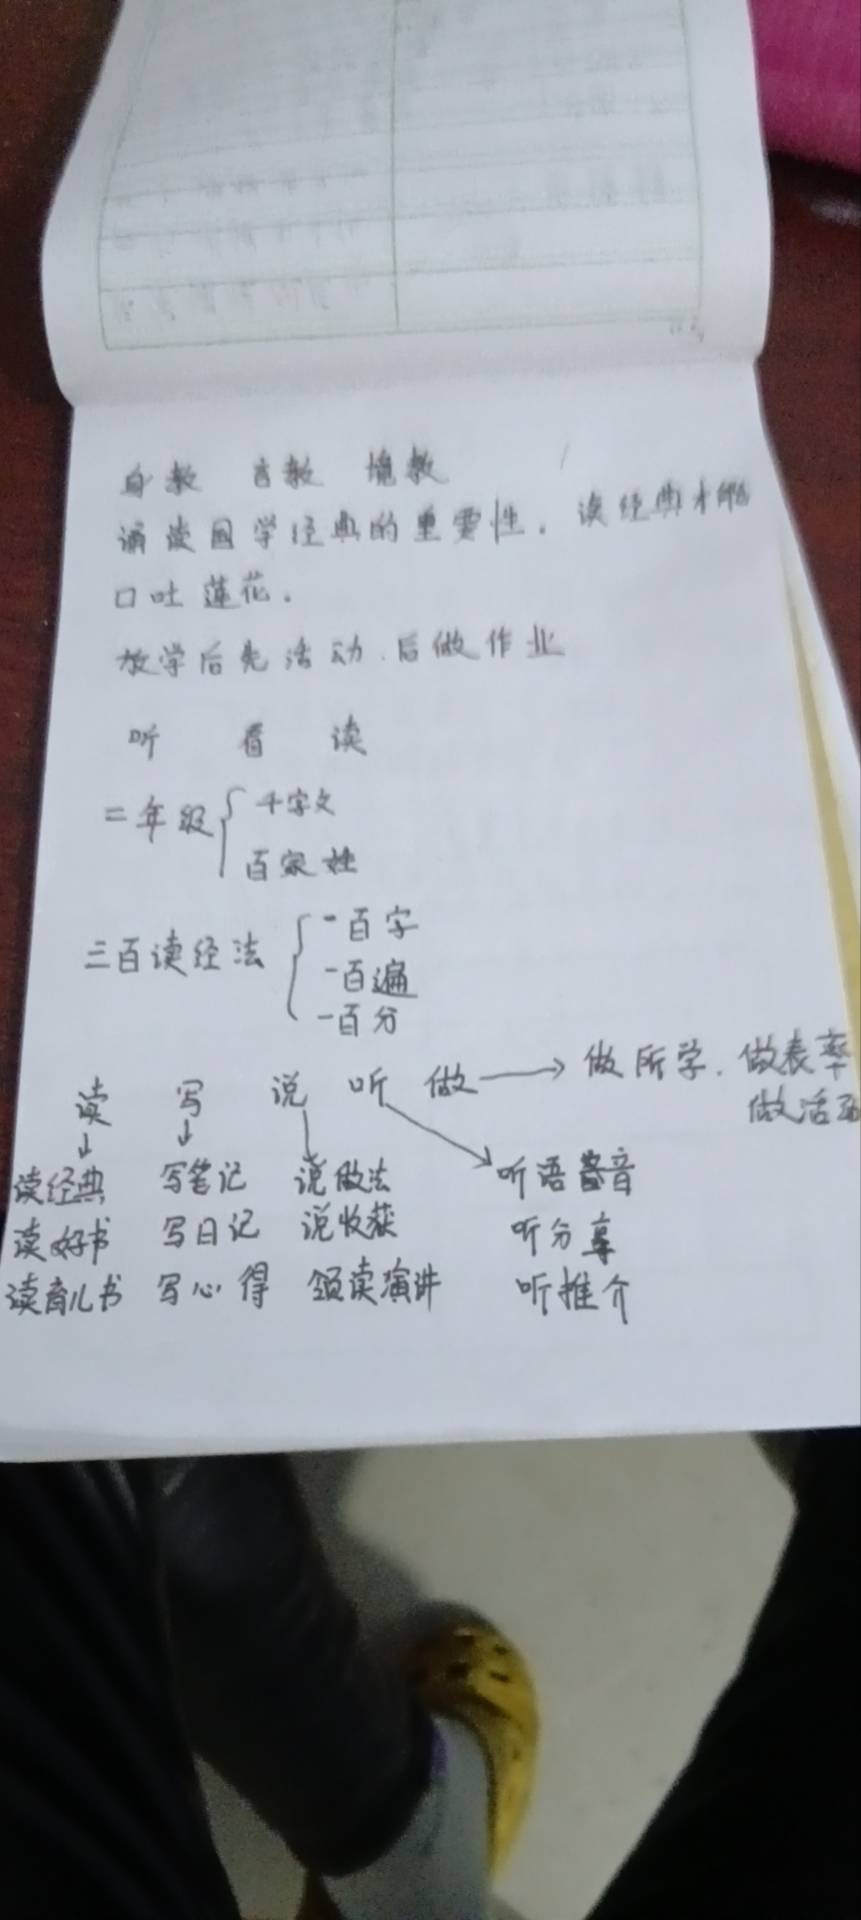 身教 言教 境教
诵读国学经典的重要性。读经典才能
口吐莲花。
放学后先活动.后做作业
听 看 读
二年级 千字文
百家姓
三百读经法 一百字
一百遍
一百分
读 写 说 听 做 → 做所学.做表率
做活动
读经典 写笔记 说做法 听语音
读好书 写日记 说收获 听分享
读育儿书 写心得 领读演讲 听推介